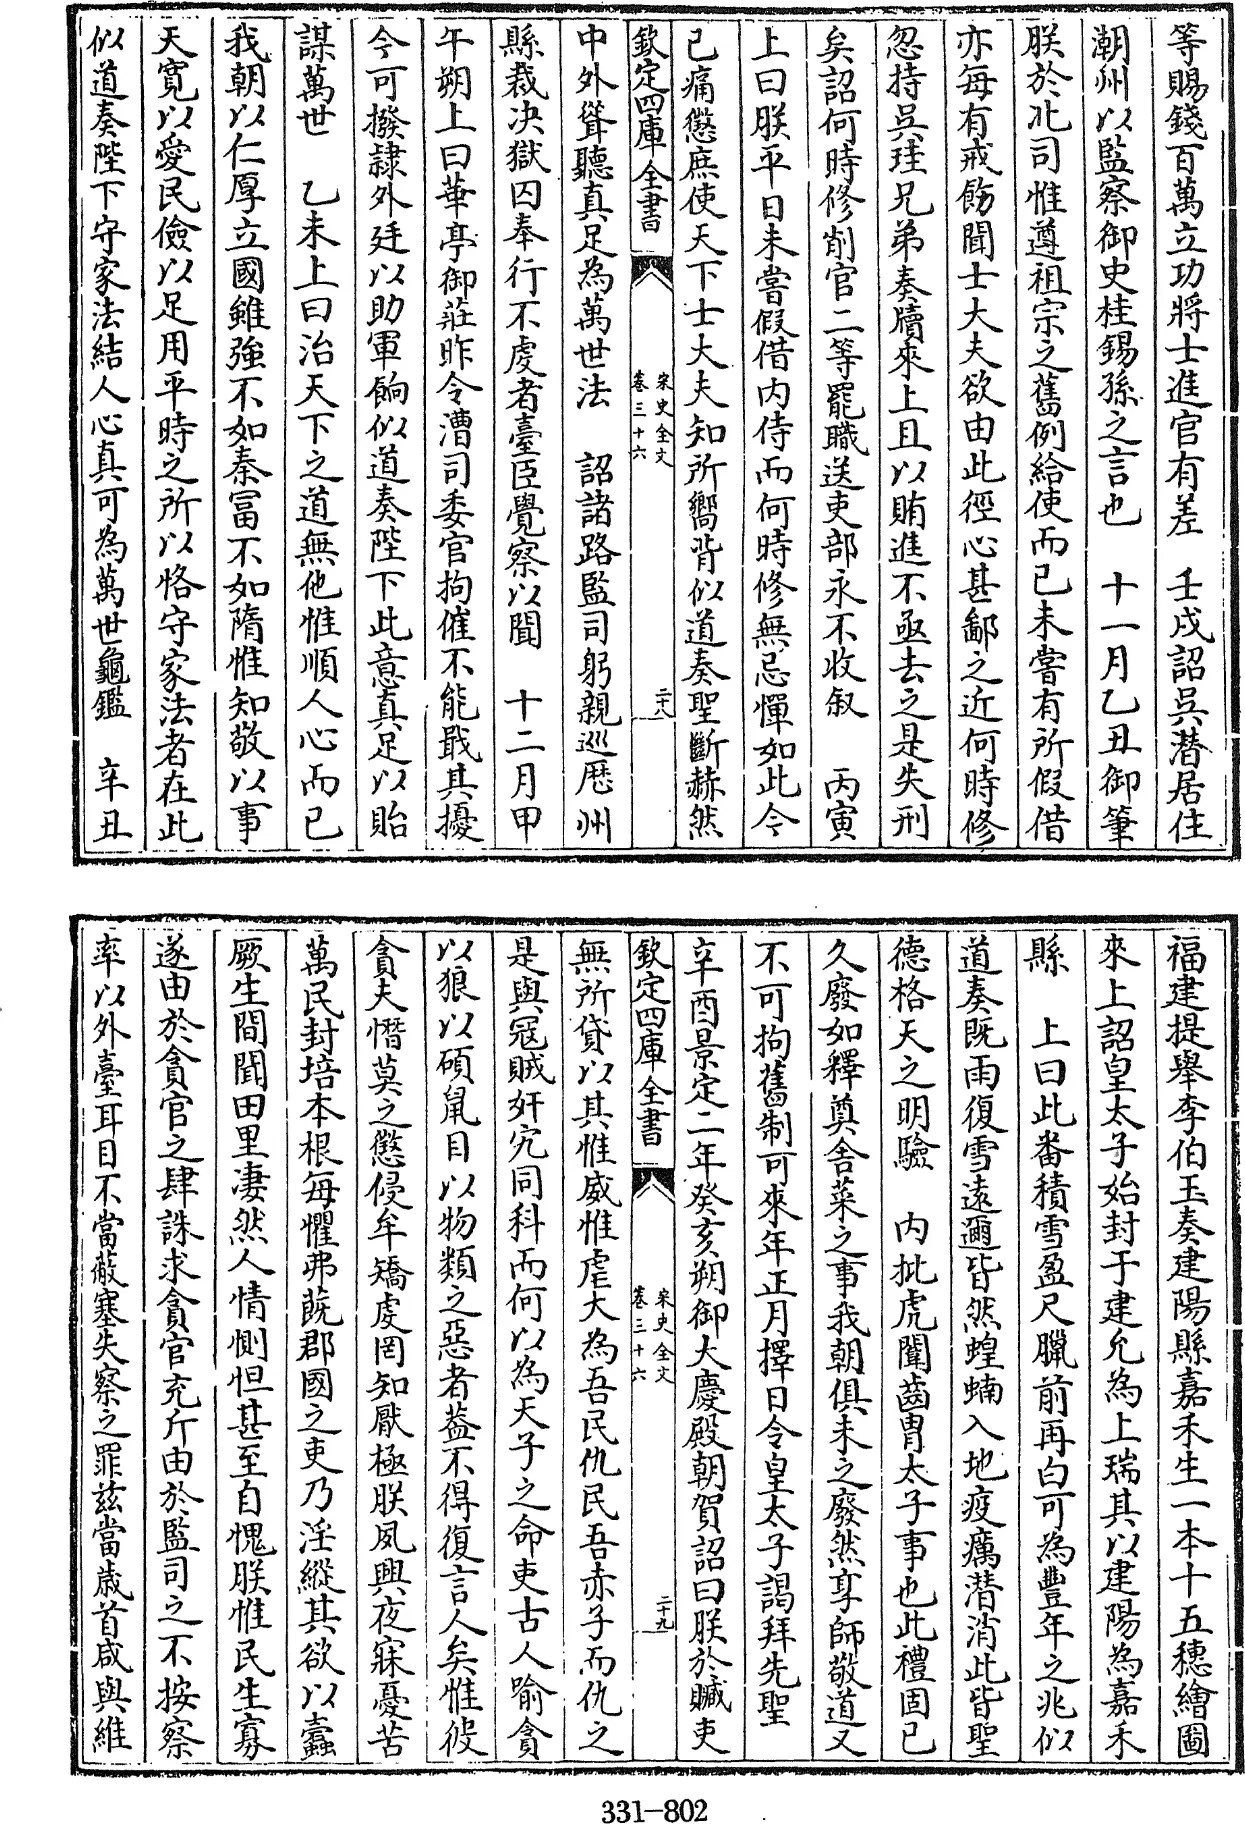 等賜錢百萬立功將士進官有差　壬戌詔吳潛居住
潮州以監察御史桂錫孫之言也　十一月乙丑御筆
朕於北司惟遵祖宗之舊例給使而已未嘗有所假借
亦每有戒飭聞士大夫欲由此徑心甚鄙之近何時修
忽持吳珪兄弟奏牘來上且以賄進不亟去之是失刑
矣詔何時修削官二等罷職送吏部永不收叙　丙寅
上曰朕平日未嘗假借内侍而何時修無忌憚如此今
已痛懲庶使天下士大夫知所嚮背似道奏聖斷赫然
欽定四庫全書　宋史全文卷三十六　二十八
中外聳聽真足為萬世法　詔諸路監司躬親巡歷州
縣裁决獄囚奉行不䖍者臺臣覺察以聞　十二月甲
午朔上曰華亭御莊昨令漕司委官拘催不能戢其擾
今可撥隸外廷以助軍餉似道奏陛下此意真足以貽
謀萬世　乙未上曰治天下之道無他惟順人心而已
我朝以仁厚立國雖強不如秦冨不如隋惟知敬以事
天寛以愛民儉以足用平時之所以恪守家法者在此
似道奏陛下守家法結人心真可為萬世龜鑑　辛丑
福建提舉李伯玉奏建陽縣嘉禾生一本十五穗繪圖
來上詔皇太子始封于建允為上瑞其以建陽為嘉禾
縣　上曰此番積雪盈尺臘前再白可為豐年之兆似
道奏既雨復雪遠邇皆然蝗蝻入地疫癘潛消此皆聖
德格天之明驗　内批虎闈齒胄太子事也此禮固已
久廢如釋奠舍菜之事我朝俱未之廢然享師敬道又
不可拘舊制可來年正月擇日令皇太子謁拜先聖
辛酉景定二年癸亥朔御大慶殿朝賀詔曰朕於贓吏
欽定四庫全書　宋史全文卷三十六　二十九
無所貸以其惟威惟虐大為吾民仇民吾赤子而仇之
是與冦賊奸宄同科而何以為天子之命吏古人喻貪
以狼以碩鼠目以物類之惡者葢不得復言人矣惟彼
貪夫憯莫之懲侵牟矯虔罔知厭極朕夙興夜寐憂苦
萬民封培本根每懼弗蔇郡國之吏乃淫縱其欲以蠧
厥生間聞田里凄然人情惻怛甚至自愧朕惟民生寡
遂由於貪官之肆誅求貪官充斥由於監司之不按察
率以外臺耳目不當蔽塞失察之罪兹當歲首咸與維
331-802